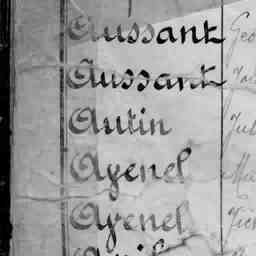 Aussant Geo
Aussant
Autin Jul
Ayenel
Ayenel